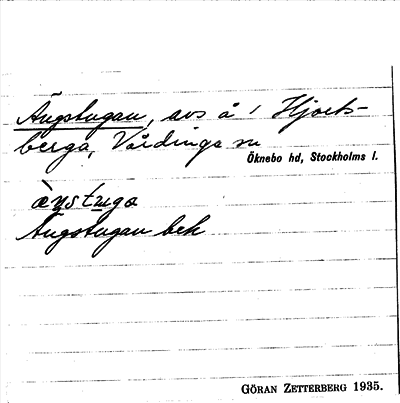 Ängstugan, avs å 1 Hjorts-
berga, Vårdinga sn
Öknebo hd, Stockholms l.
Ängstugan bek
GÖRAN ZETTERBERG 1935.